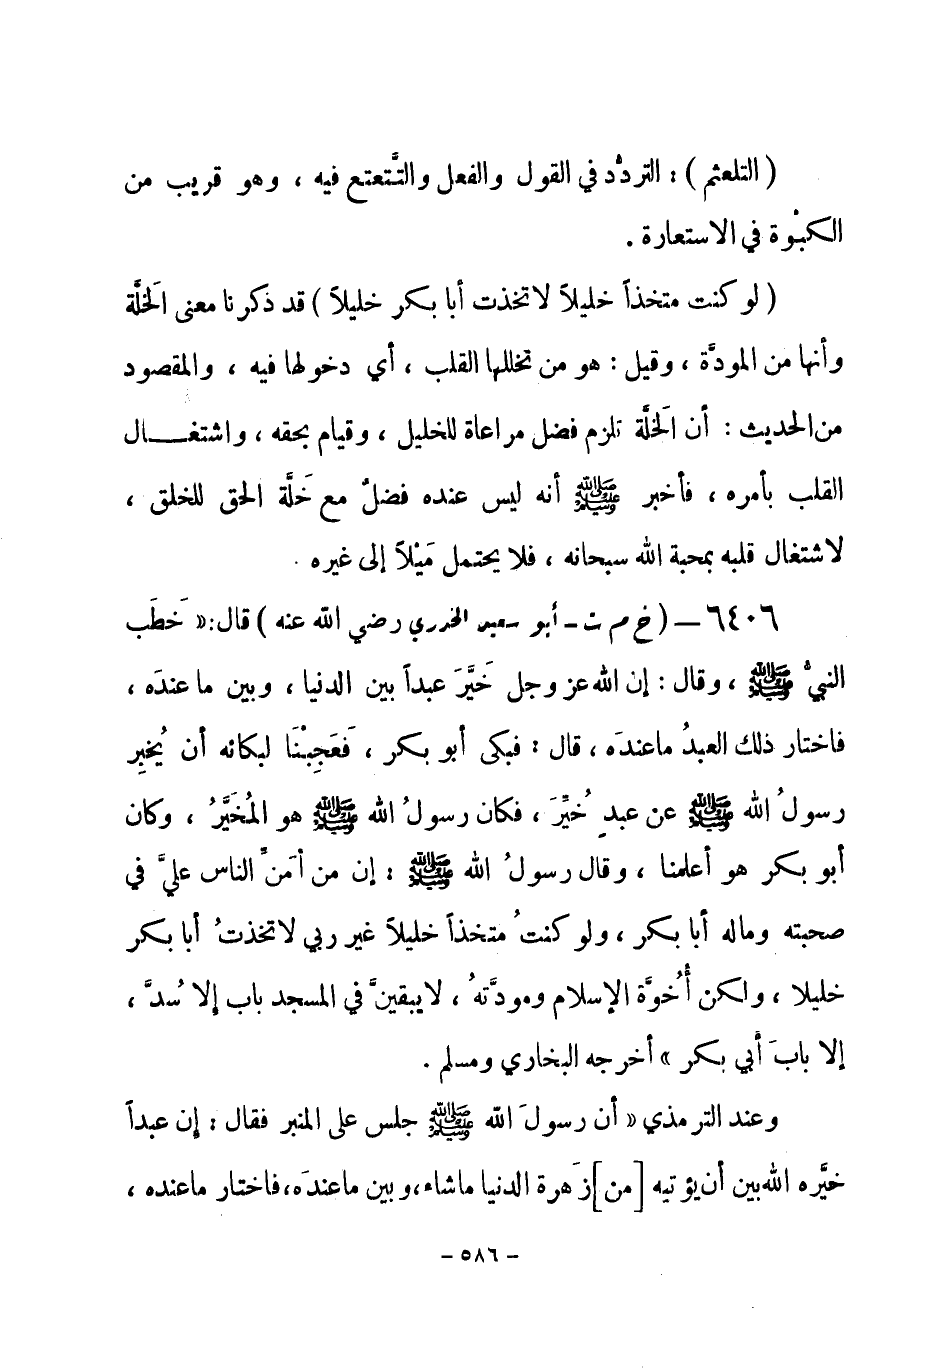 ( التلعثم ) : التردُّد في القول والفعل والتَّتعتع فيه ، وهو قريب من
الكبْوة في الاستعارة .
( لو كنت متخذاً خليلاً لاتخذت أبا بكر خليلاً ) قد ذكرنا معنى الَخلَّة
وأنها من المودَّة ، وقيل : هو من تخللها القلب ، أي دخولها فيه ، والمقصود
من الحديث : أن الَخلَّة تلزم فضل مراعاة للخليل ، وقيام بحقه ، واشتغـــال
القلب بأمره ، فأخبر ﷺ أنه ليس عنده فضلٌ مع خَلَّة الحق للخلق ،
لاشتغال قلبه بمحبة الله سبحانه ، فلا يحتمل مَيْلاً إلى غيره .
٦٤٠٦ – ( خ م ت - أبو سعيد الخدري رضي الله عنه ) قال : « خَطَب
النبيُّ ﷺ ، وقال : إن الله عز وجل خَيَّرَ عبداً بين الدنيا ، وبين ما عندَه ،
فاختار ذلك العبدُ ما عندَه ، قال : فبكى أبو بكر ، فَعَجِبْنَا لبكائه أن يُخبِر
رسولُ الله ﷺ عن عبدٍ خُيِّرَ ، فكان رسولُ الله ﷺ هو المُخَيَّرُ ، وكان
أبو بكر هو أعلمنا ، وقال رسولُ الله ﷺ : إن من أمَنِّ الناس عليَّ في
صحبته وماله أبا بكر ، ولو كنتُ متخذاً خليلاً غير ربي لاتخذتُ أبا بكر
خليلا ، ولكن أُخوَّة الإسلام ومودَّتهُ ، لا يبقينَّ في المسجد باب إلا سُدَّ ،
إلا بابَ أبي بكر » أخرجه البخاري ومسلم .
وعند الترمذي « أن رسولَ الله ﷺ جلس على المنبر فقال : إن عبداً
خيَّره الله بين أن يؤتيه [من] زَهرة الدنيا ما شاء ، وبين ما عندَه ، فاختار ما عنده ،
- ٥٨٦ -